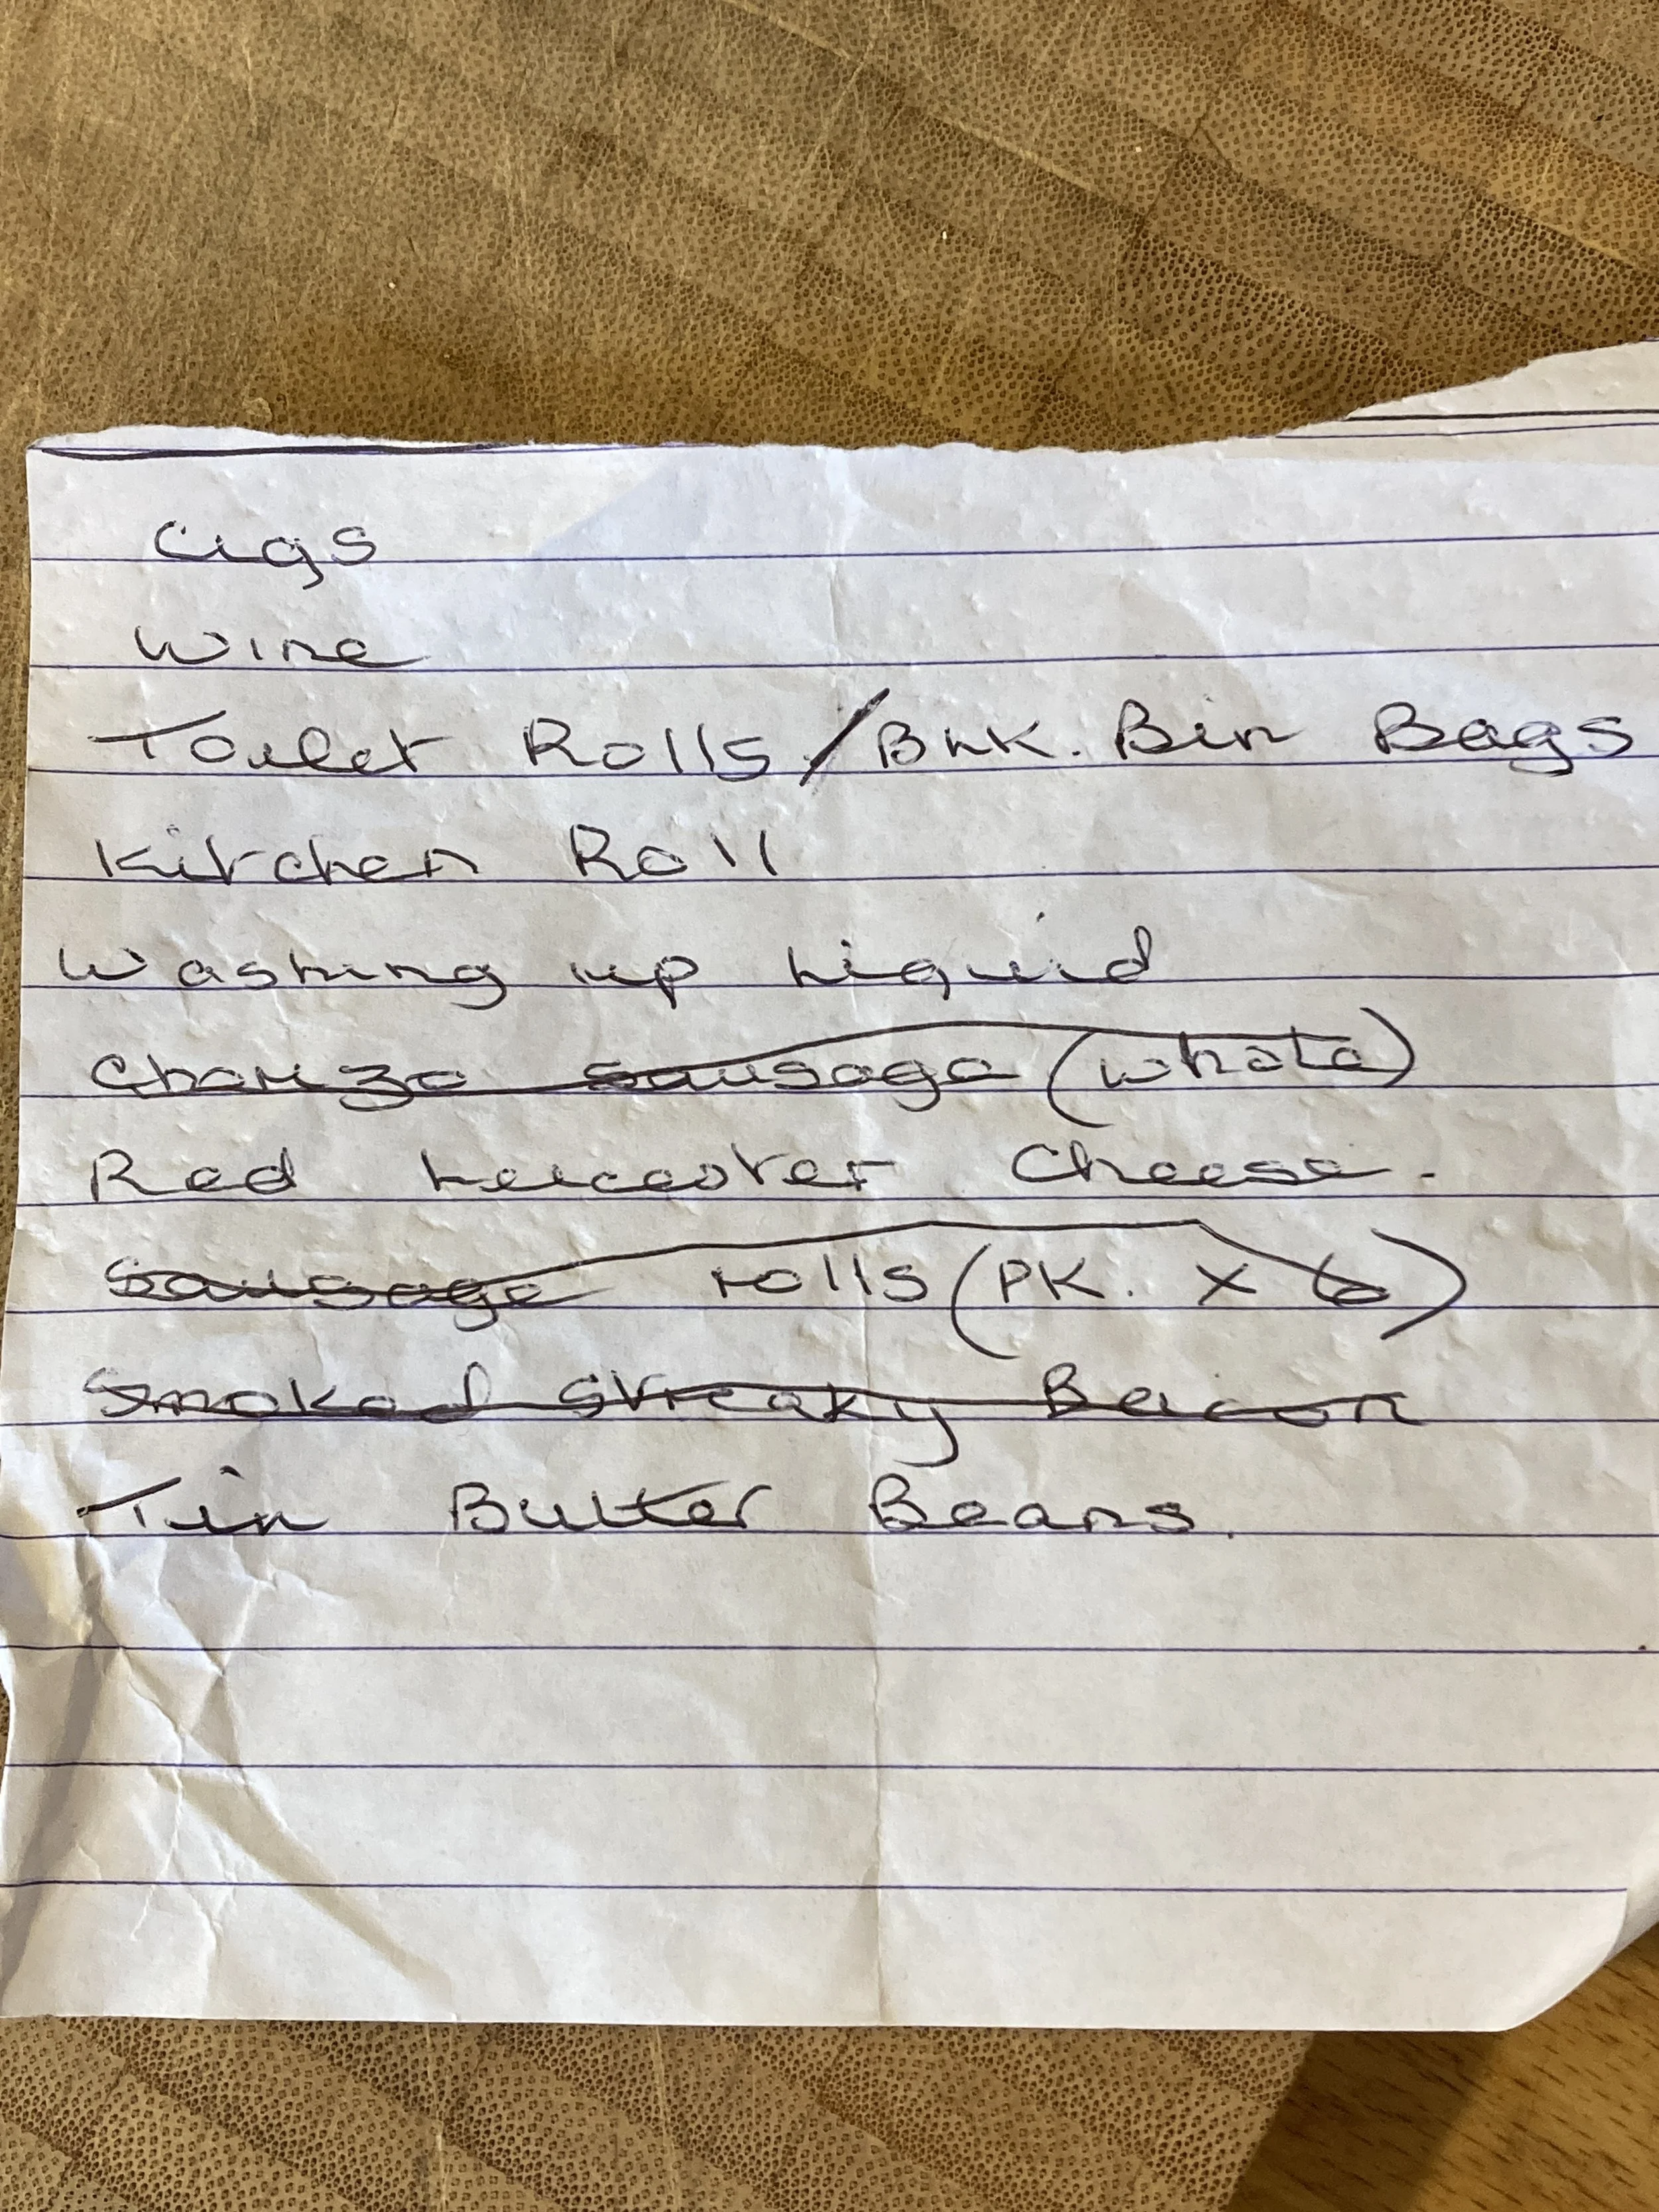 Cigs
Wine
Toilet Rolls / Bnk. Bin Bags
Kitchen Roll
Washing up Liquid
Chorizo sausage (whole)
Red Leicester Cheese.
Sausage rolls (PK. x 6)
Smoked Streaky Bacon
Tin Butter Beans.